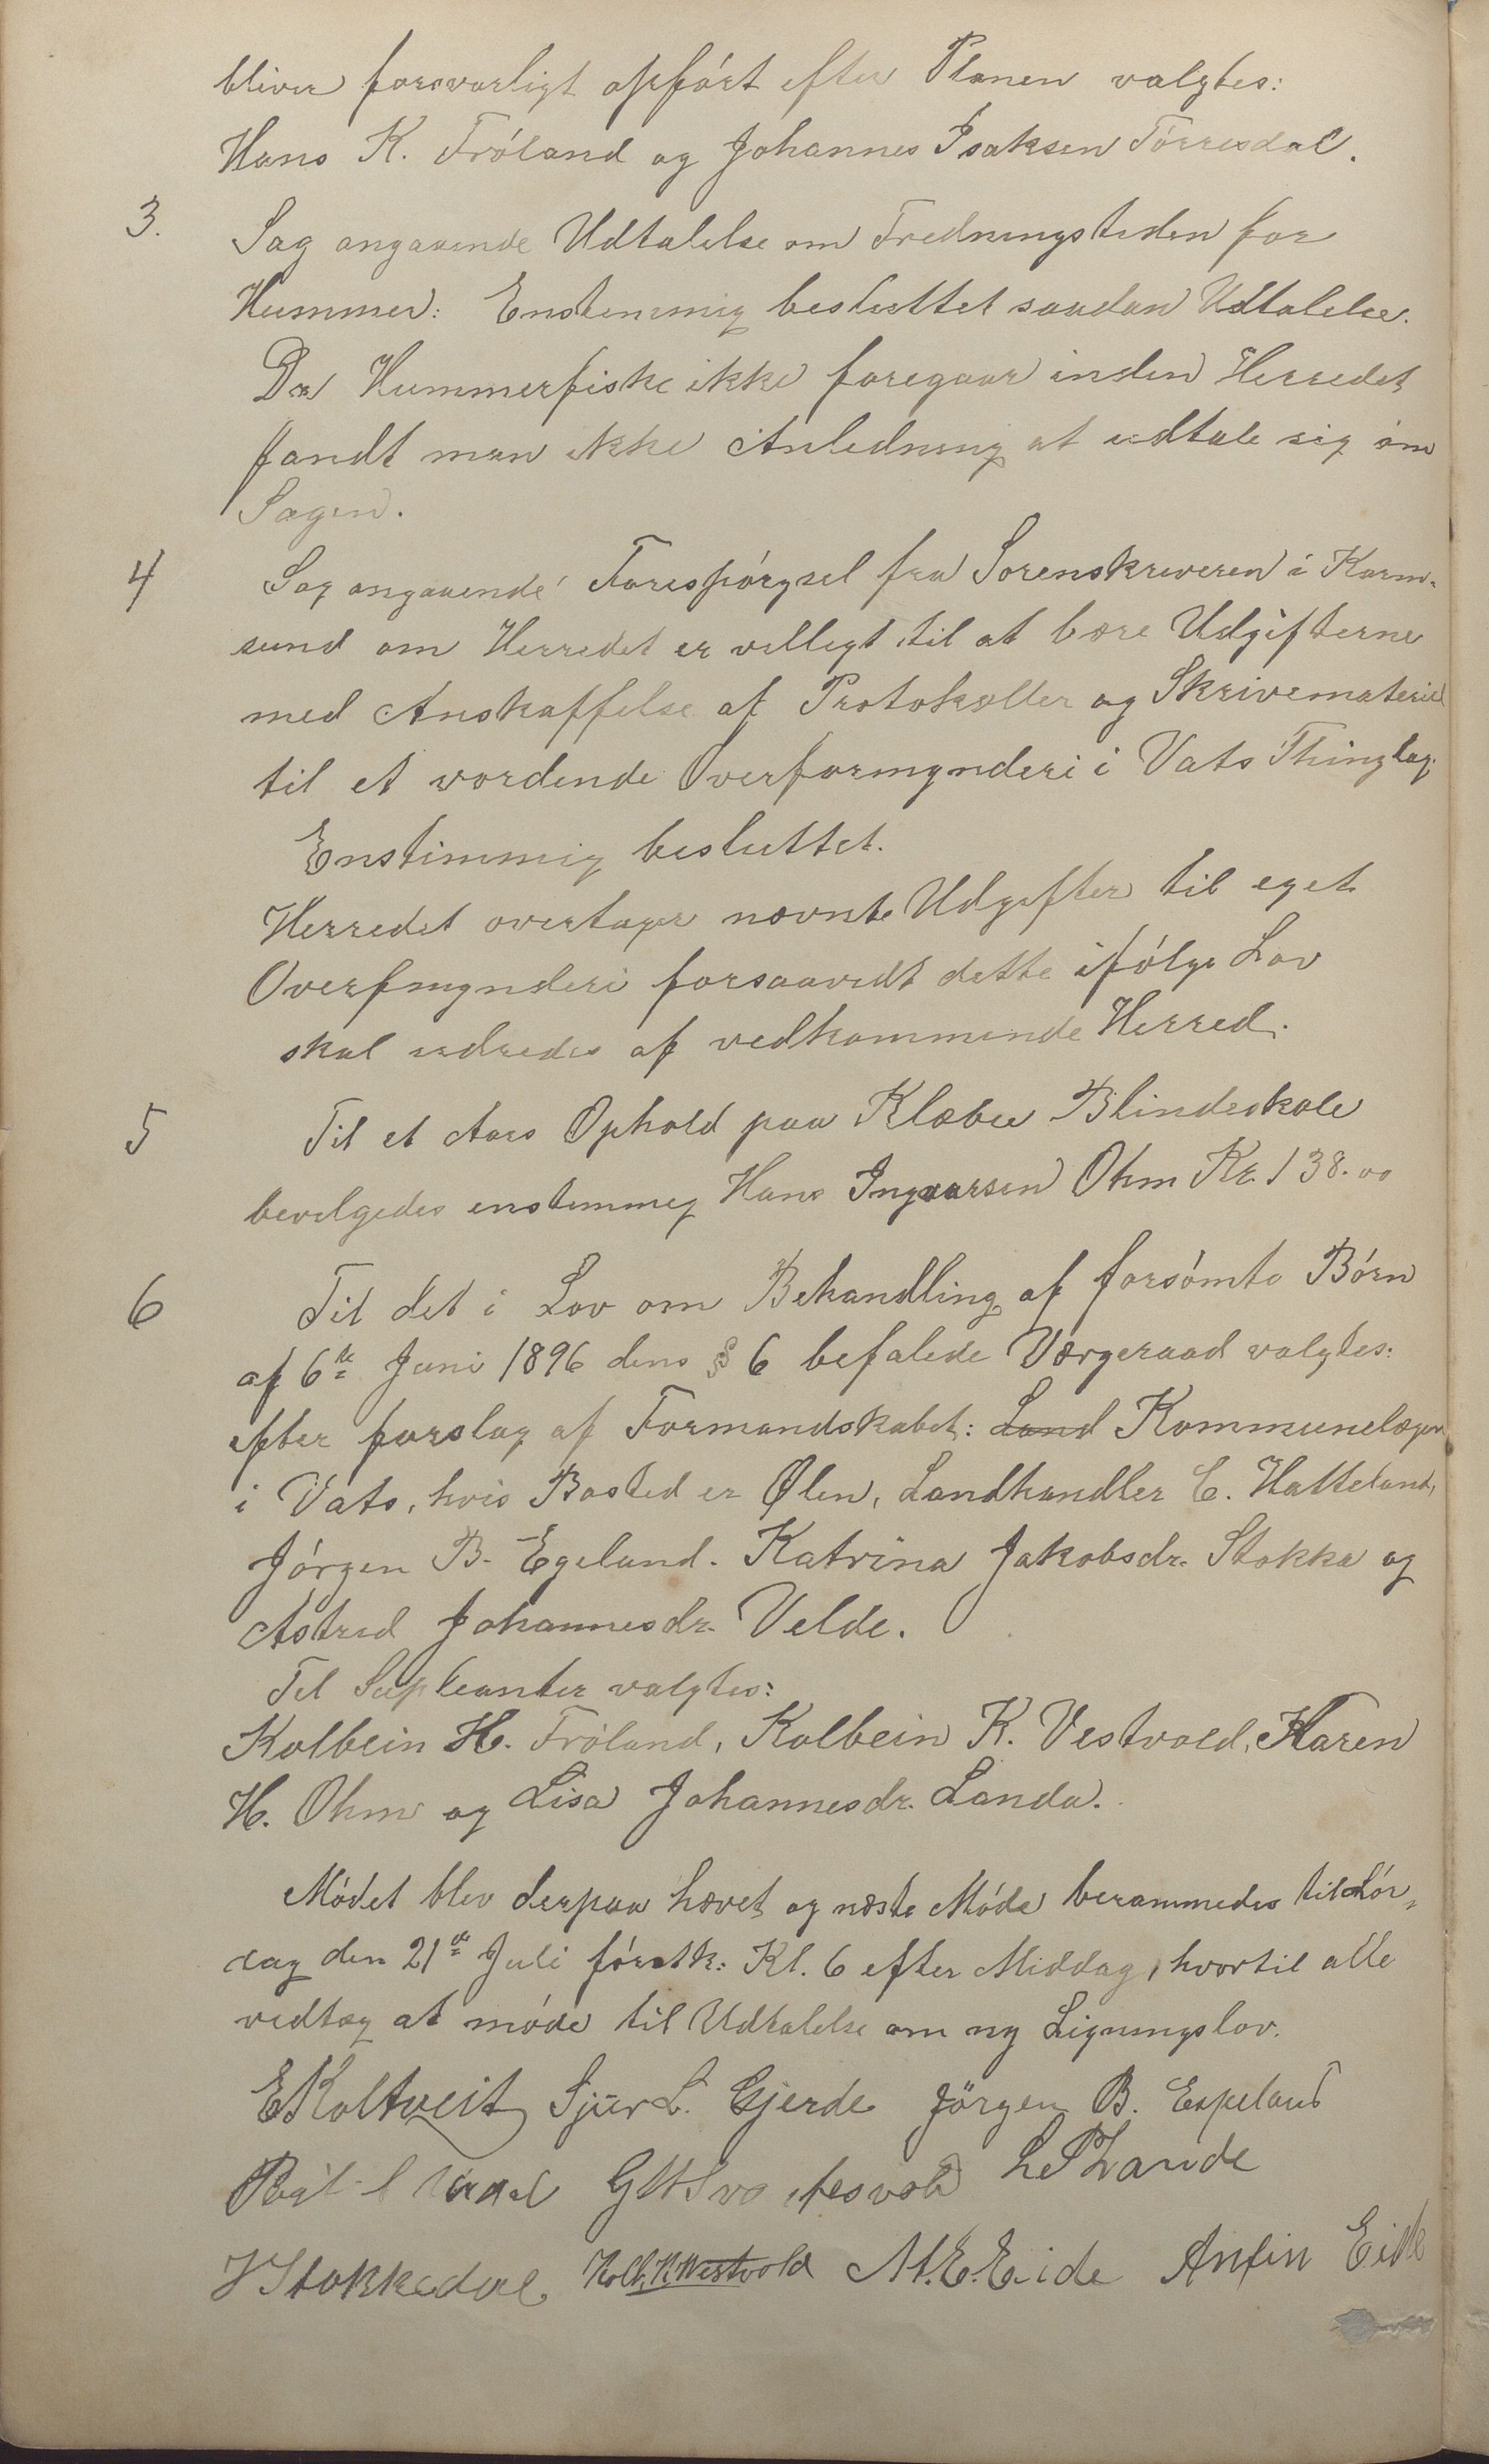 bliver forsvarligt opfórt efter Planen valgtes:
Hans K. Fróland og Johannes Isaksen Tórresdal.
3. Sag angaaende Udtalelse om Fredningstiden for
Hummer: Enstemmig besluttet saadan Udtalelse.
Da Hummerfiske ikke foregaar inden Herredet
fandt man ikke Anledning at udtale sig om
Sagen.
4 Sag angaaende Forespórgsel fra Sorenskriveren i Karm-
sund om Herredet er villigt til at bære Udgifterne
med Anskaffelse af Protokoller og Skrivemateriel
til et vordende Overformynderi i Vats Thinglag.
Enstimmig besluttet.
Herredet overtager nævnte Udgifter til eget
Overfmynderi forsaavidt dette ifólge Lov
skal udredes af vedkommende Herred.
5 Til et Aars Ophold paa Klæbu Blindeskole
bevilgedes enstemmig Hans Ingvarsen Ohm Kr. 138.00
6 Til det i Lov om Behandling af forsómte Bórn
af 6te Juni 1896 dens § 6 befalede Værgeraad valgtes:
efter forslag af Formandskabet: Land Kommunelægen
i Vats, hvis Bosted er Ølen, Landhandler C. Hatteland,
Jórgen B. Egeland. Katrina Jakobsdr. Stokka og
Astrid Johannesdr. Velde.
Til Supleanter valgtes:
Kolbein H. Fróland, Kolbein K. Vestvold, Karen
H. Ohm og Lisa Johannesdr. Landa.
Módet blev derpaa hævet og næste Móde berammedes til Lór-
dag den 21de Juli fórstk: Kl. 6 efter Middag, hvortil alle
vedtog at móde til Udtalelse om ny Ligningslov.
E Koltveit Sjur L. Gjerde Jörgen B. Espeland
L P Lande
J Stokkedal Kolb. K. Westvold M. E. Eide Anfin Eide